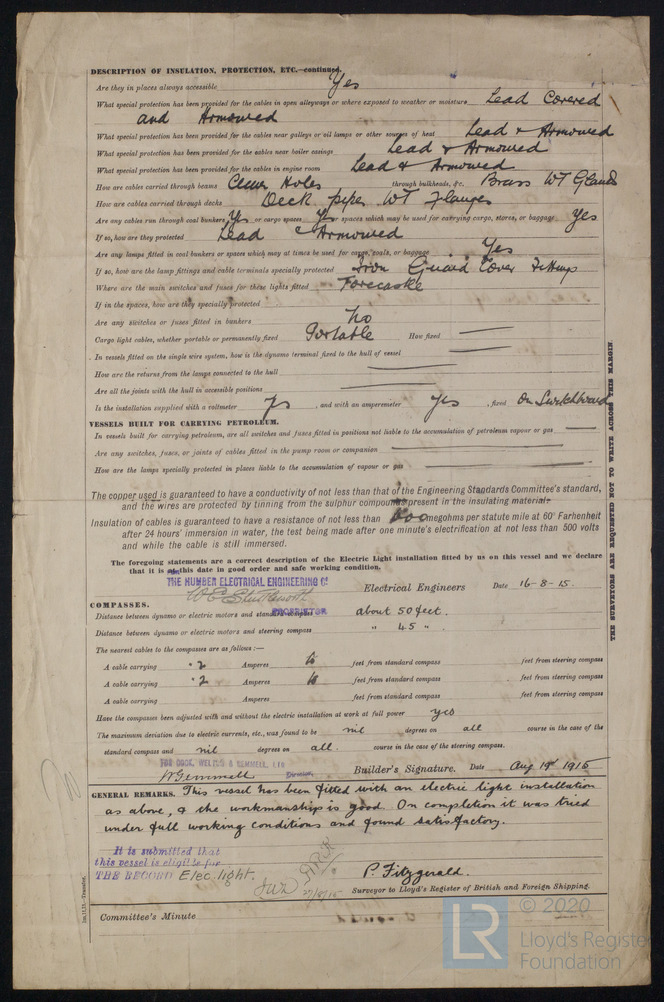 DESCRIPTION OF INSULATION, PROTECTION, ETC.—continued.
Are they in places always accessible Yes
What special protection has been provided for the cables in open alleyways or where exposed to weather or moisture Lead Covered
and Armoured
What special protection has been provided for the cables near galleys or oil lamps or other sources of heat Lead & Armoured
What special protection has been provided for the cables near boiler casings Lead & Armoured
What special protection has been provided for the cables in engine room Lead & Armoured
How are cables carried through beams Holes through bulkheads, &c. Brass WT Glands
How are cables carried through decks Deck pipes WT Flanges
Are any cables run through coal bunkers Yes or cargo spaces Yes spaces which may be used for carrying cargo, stores, or baggage Yes
If so, how are they protected Lead & Armoured
Are any lamps fitted in coal bunkers or spaces which may at times be used for cargo, coals, or baggage Yes
If so, how are the lamp fittings and cable terminals specially protected Iron Guard Cover Fittings
Where are the main switches and fuses for these lights fitted Forecastle
If in the spaces, how are they specially protected
Are any switches or fuses fitted in bunkers No
Cargo light cables, whether portable or permanently fixed Portable How fixed
In vessels fitted on the single wire system, how is the dynamo terminal fixed to the hull of vessel
How are the returns from the lamps connected to the hull
Are all the joints with the hull in accessible positions
Is the installation supplied with a voltmeter Yes, and with an amperemeter Yes, fixed On Switchboard
VESSELS BUILT FOR CARRYING PETROLEUM.
In vessels built for carrying petroleum, are all switches and fuses fitted in positions not liable to the accumulation of petroleum vapour or gas
Are any switches, fuses, or joints of cables fitted in the pump room or companion
How are the lamps specially protected in places liable to the accumulation of vapour or gas
The copper used is guaranteed to have a conductivity of not less than that of the Engineering Standards Committee's standard,
and the wires are protected by tinning from the sulphur compounds present in the insulating material.
Insulation of cables is guaranteed to have a resistance of not less than 600 megohms per statute mile at 60° Farhenheit
after 24 hours' immersion in water, the test being made after one minute's electrification at not less than 500 volts
and while the cable is still immersed.
The foregoing statements are a correct description of the Electric Light installation fitted by us on this vessel and we declare
that it is at this date in good order and safe working condition.
THE HUMBER ELECTRICAL ENGINEERING Co
Electrical Engineers Date 16-8-15.
PROPRIETOR
COMPASSES.
Distance between dynamo or electric motors and standard compass about 50 feet.
Distance between dynamo or electric motors and steering compass " 45 "
The nearest cables to the compasses are as follows:—
A cable carrying .2 Amperes feet from standard compass feet from steering compass
A cable carrying .2 Amperes feet from standard compass feet from steering compass
A cable carrying Amperes feet from standard compass feet from steering compass
Have the compasses been adjusted with and without the electric installation at work at full power yes
The maximum deviation due to electric currents, etc., was found to be nil degrees on all course in the case of the
standard compass and nil degrees on all. course in the case of the steering compass.
FOR COOK, WELTON & GEMMELL, LTD
WGemmell Director. Builder's Signature. Date Aug 19th 1915
GENERAL REMARKS. This vessel has been fitted with an electric light installation
as above, & the workmanship is good. On completion it was tried
under full working conditions and found satisfactory.
It is submitted that
this vessel is eligible for
THE RECORD Elec. light.
P. Fitzgerald.
Surveyor to Lloyd's Register of British and Foreign Shipping.
Committee's Minute
THE SURVEYORS ARE REQUESTED NOT TO WRITE ACROSS THIS MARGIN.
LR
© 2020
Lloyd's Register
Foundation